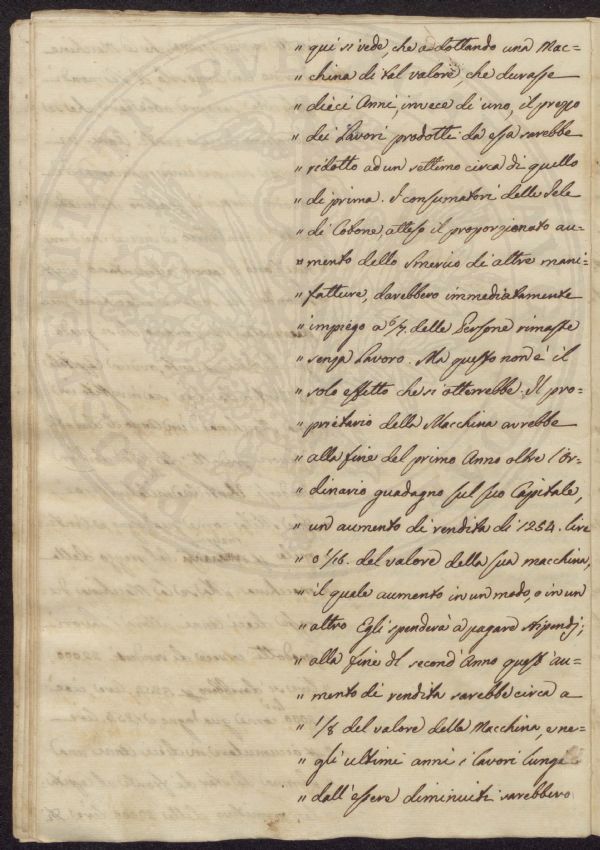 " qui si vede, che adottando una Mac-
" china di tal valore, che durasse
" dieci Anni, invece di uno, il prezzo
" dei Lavori prodotti da essa sarebbe
" ridotto ad un settimo circa di quello
" di prima. I consumatori delle Tele
" di Cotone, atteso il proporzionato au-
" mento dello smercio di altre mani-
" fatture, darebbero immediatamente
" impiego a 6/7. delle Persone rimaste
" senza Lavoro. Ma questo non è il
" solo effetto che si otterrebbe. Il pro-
" prietario della Macchina avrebbe
" alla fine del primo Anno oltre l'or-
" dinario guadagno sul suo Capitale,
" un aumento di rendita di 1254. lire
" o 1/16. del valore della sua macchina,
" il quale aumento in un modo, o in un
" altro Egli spenderà a pagare stipendj;
" alla fine dl second'Anno quest'au-
" mento di rendita sarebbe circa a
" 1/8 del valore della Macchina, e ne-
" gli ultimi anni i lavori lungi
" dall'essere diminuiti sarebbero